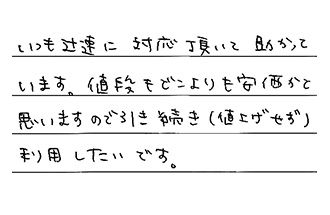 いつも迅速に対応頂いて助かって
います。値段もどこよりも安価かと
思いますので引き続き(値上げせず)
利用したいです。